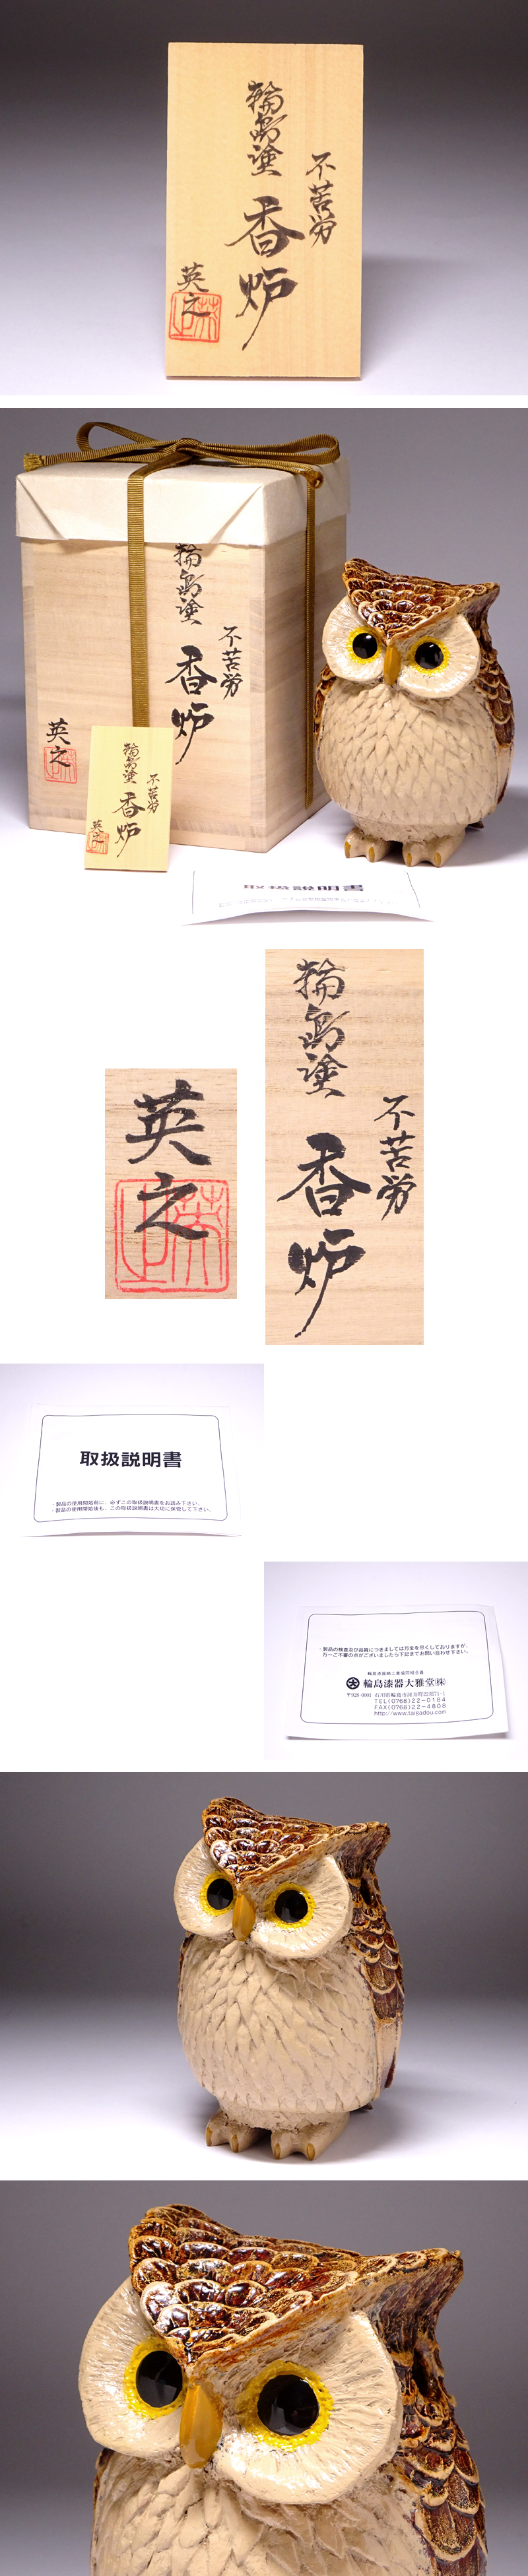 不苦労
輪島塗
香炉
英之
不苦労
輪島塗
香炉
英之
不苦労
輪島塗
香炉
英之
取扱説明書
英之
不苦労
輪島塗
香炉
取扱説明書
・製品の使用開始前に、必ずこの取扱説明書をお読み下さい。
・製品の使用開始後も、この取扱説明書は大切に保管して下さい。
・製品の検査及び品質につきましては万全を尽くしておりますが、
万一ご不審の点がございましたら下記までお問い合わせ下さい。
輪島漆器大雅堂㈱
TEL(0768)22-0184
FAX(0768)22-4808
http://www.taigadou.com